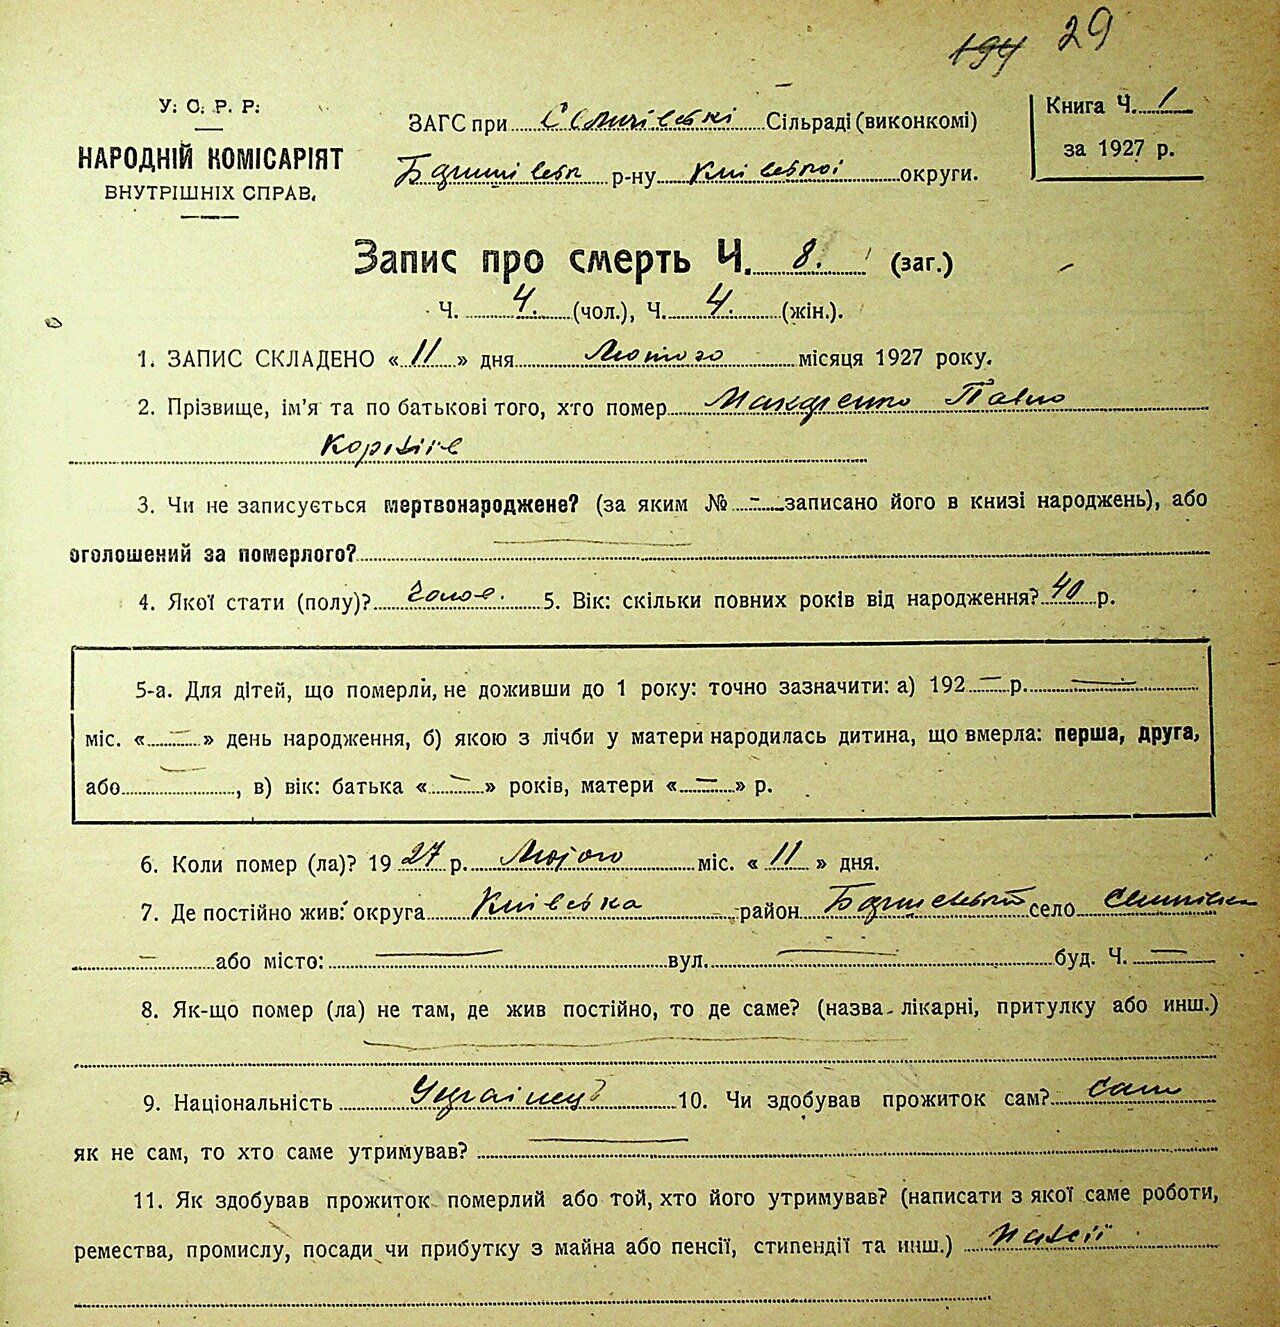 194 29
У. С. Р. Р.
НАРОДНІЙ КОМІСАРІЯТ
ВНУТРІШНІХ СПРАВ.
ЗАГС при Сільраді (виконкомі)
р-ну округи.
Книга Ч. 1
за 1927 р.
Запис про смерть Ч. 8. (заг.)
Ч. 4. (чол.), Ч. 4. (жін.).
1. ЗАПИС СКЛАДЕНО «11» дня Лютого місяця 1927 року.
2. Прізвище, ім'я та по батькові того, хто помер Макаренко Павло
3. Чи не записується мертвонароджене? (за яким № — записано його в книзі народжень), або
оголошений за померлого?
4. Якої стати (полу)? Чолов. 5. Вік: скільки повних років від народження? 40 р.
5-а. Для дітей, що померли, не доживши до 1 року: точно зазначити: а) 192 — р. —
міс. « — » день народження, б) якою з лічби у матери народилась дитина, що вмерла: перша, друга,
або — , в) вік: батька « — » років, матери « — » р.
6. Коли помер (ла)? 19 27 р. Лютого міс. « 11 » дня.
7. Де постійно жив: округа Київська район село
— або місто: — вул. — буд. Ч. —
8. Як-що помер (ла) не там, де жив постійно, то де саме? (назва лікарні, притулку або инш.)
9. Національність Українець 10. Чи здобував прожиток сам? Сам
як не сам, то хто саме утримував? —
11. Як здобував прожиток померлий або той, хто його утримував? (написати з якої саме роботи,
ремества, промислу, посади чи прибутку з майна або пенсії, стипендії та инш.)